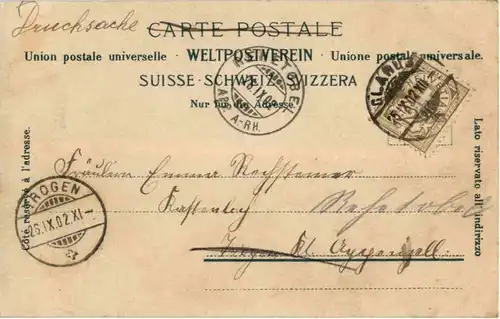 Drucksache
CARTE POSTALE
Union postale universelle WELTPOSTVEREIN Unione postale universale.
SUISSE SCHWEIZ SVIZZERA
Nur für die Adresse.
REHETOBEL
APP. A-RH.
GLARUS
Côte réservé à l'adresse.
Lato riservato all' indirizzo
TROGEN
26.IX.02.XI
Fräulein Emma Rechsteiner
Kastenloch Rehetobel
Trogen Kt. Appenzell